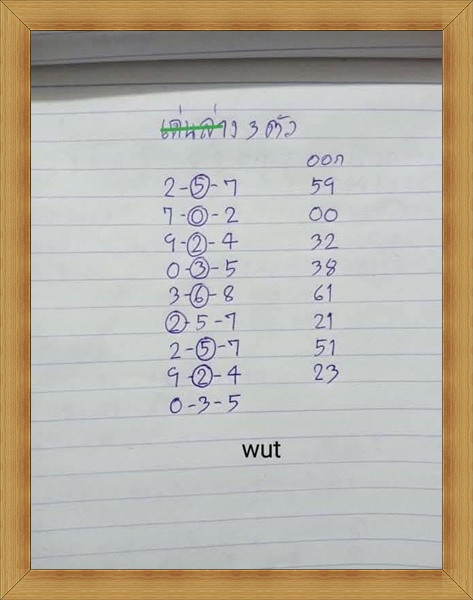 เด่นล่าง 3 ตัว
ออก
2-5-7 59
7-0-2 00
9-2-4 32
0-3-5 38
3-6-8 61
2-5-7 21
2-5-7 51
9-2-4 23
0-3-5
wut